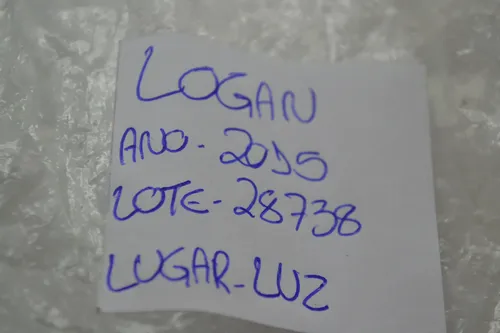 LOGAN
ANO- 2015
LOTE- 28738
LUGAR-LUZ